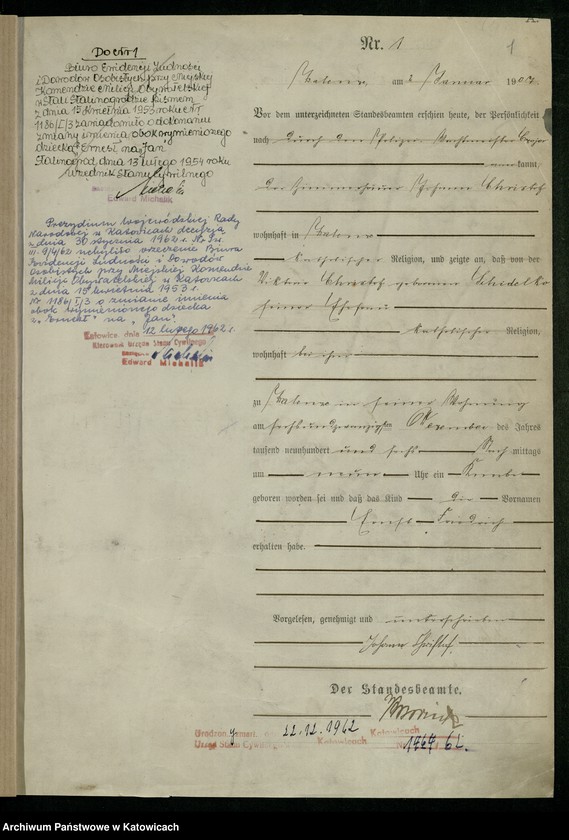 Do Nr 1
Biuro Ewidencji Ludności
i Dowodów Osobistych przy Miejskiej
Komendzie Milicji Obywatelskiej
w Stalinogrodzie pismem
z dnia 15 kwietnia 1953 roku Nr
1186/I/3 zawiadomiło o dokonaniu
zmiany imienia obok wymienionego
dziecka "Ernest" na "Jan".
Stalinogród, dnia 13 lutego 1954 roku
Urzędnik Stanu Cywilnego
Edward Michalik
Prezydium Wojewódzkiej Rady
Narodowej w Katowicach decyzją
z dnia 30 stycznia 1962 r. Nr
III-9/4/62 uchyliło orzeczenie Biura
Ewidencji Ludności i Dowodów
Osobistych przy Miejskiej Komendzie
Milicji Obywatelskiej w Katowicach
z dnia 15 kwietnia 1953 r.
Nr 1186/I/3 o zmianie imienia
obok wymienionego dziecka
z "Ernest" na "Jan".
Katowice dnia 12 lutego 1962 r.
Kierownik Urzędu Stanu Cywilnego
Edward Michalik
Nr. 1
1
am 2 Januar 1907
Vor dem unterzeichneten Standesbeamten erschien heute, der Persönlichkeit
nach durch den Polizei
kannt,
der Johann Christof
wohnhaft in
katholischer Religion, und zeigte an, daß von der
Christof geborenen
seiner Ehefrau
katholischer Religion,
wohnhaft bei ihm
zu in seiner Wohnung
am sechsundzwanzigsten Dezember des Jahres
tausend neunhundert und sechs Nach mittags
um neun Uhr ein Knabe
geboren worden sei und daß das Kind die Vornamen
Ernst Friedrich
erhalten habe.
Vorgelesen, genehmigt und unterschrieben
Johann Christof
Der Standesbeamte.
22.12.1962
Urząd Stanu Cywil
Katowicach
Katowicach